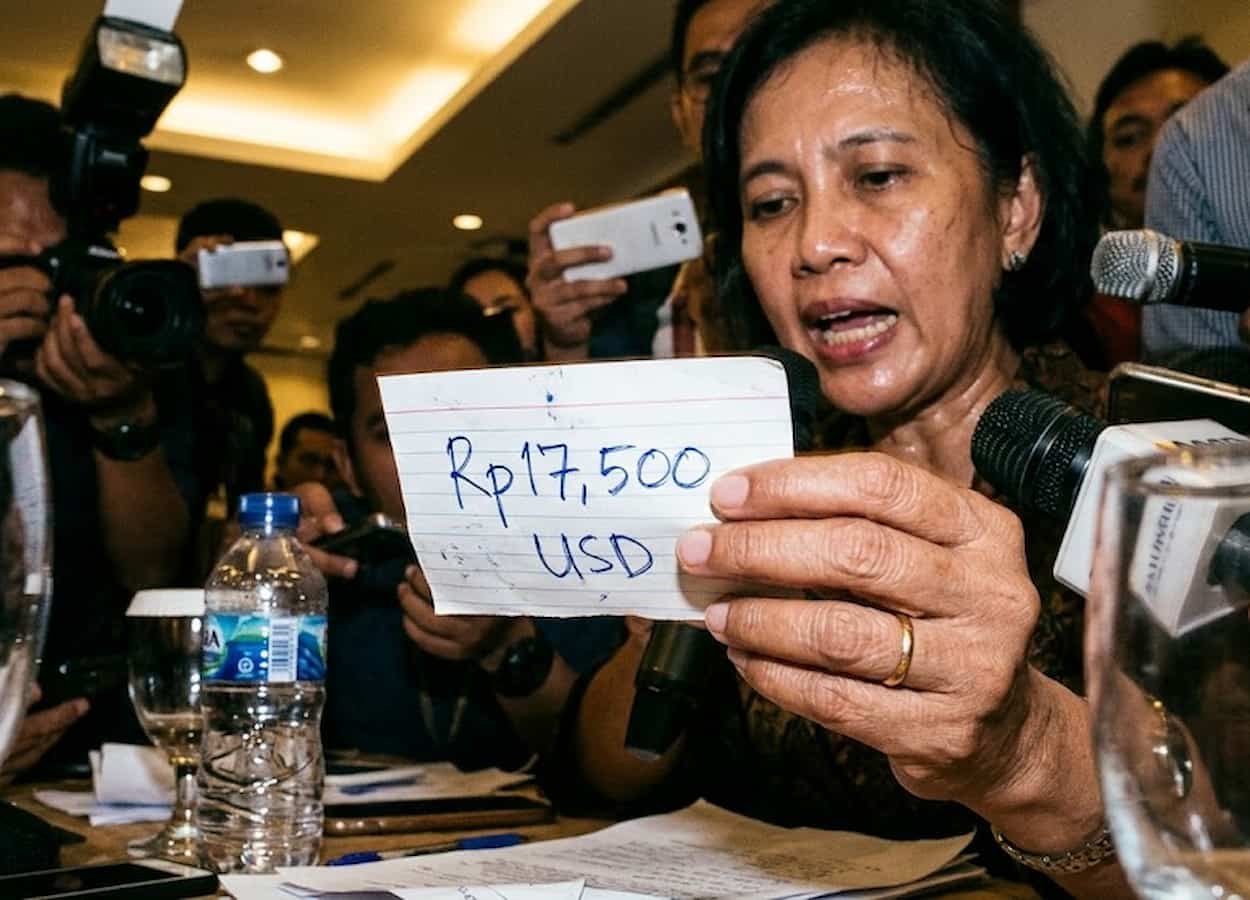 Rp17,500
USD